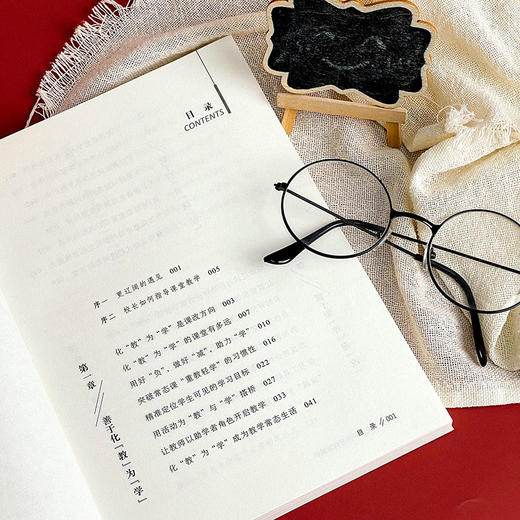 目 录
CONTENTS
序一 更辽阔的遇见 001
序二 校长如何指导课堂教学 005
第一章 // 善于化“教”为“学”
化“教”为“学”是课改方向 003
化“教”为“学”的课堂有多远 007
用好“负”，做好“减”，助力“学” 010
突破常态课“重教轻学”的习惯性 016
精准定位学生可见的学习目标 022
用活动为“教”与“学”搭桥 027
让教师以助学者角色开启教学 033
化“教”为“学”成为教学常态生活 041
目 录 // 001